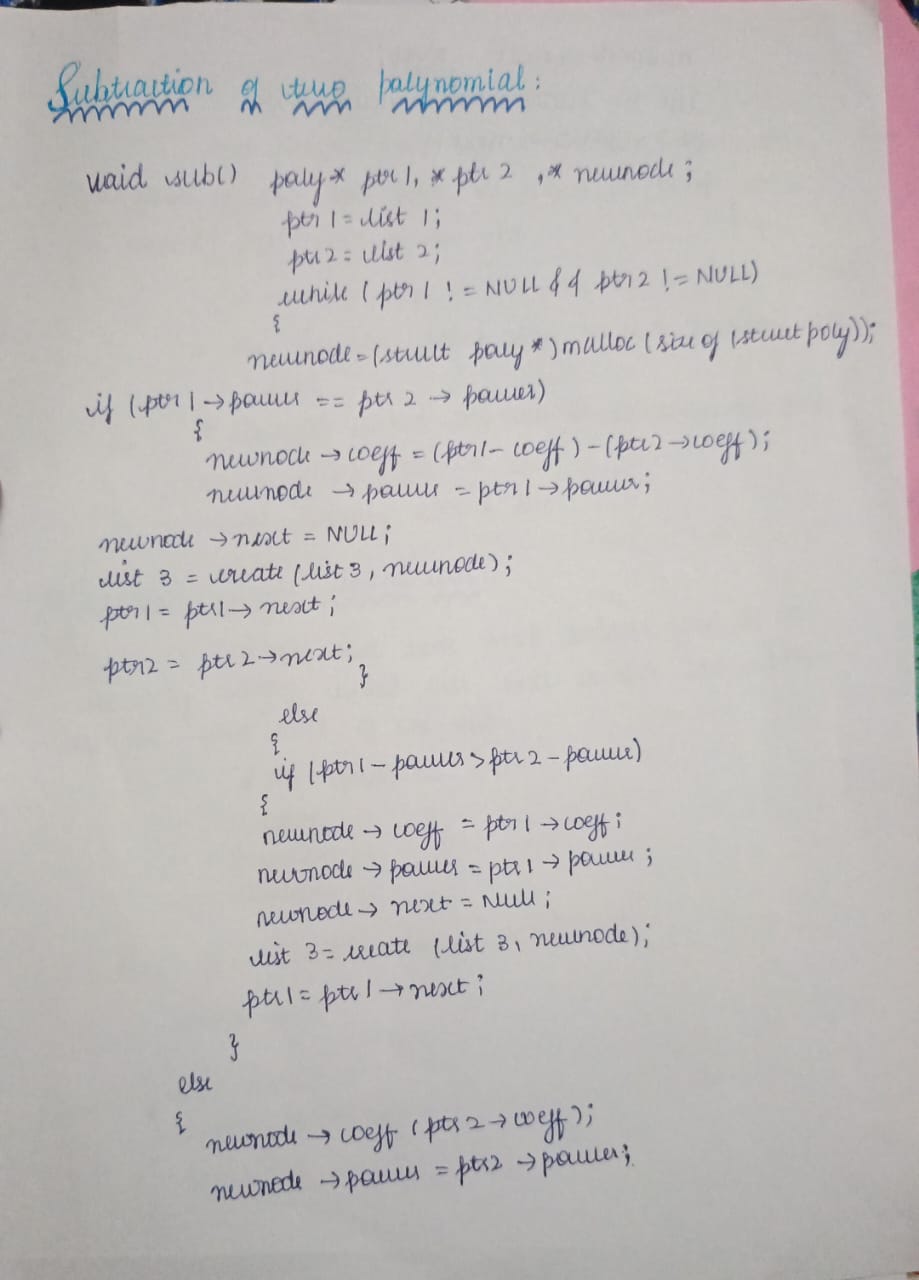 Subtraction of two polynomial:
void sub() poly* ptr1, *ptr2, *newnode;
ptr1 = list 1;
ptr2 = list 2;
while (ptr1 != NULL && ptr2 != NULL)
{
newnode = (struct poly*) malloc (size of (struct poly));
if (ptr1 → power == ptr2 → power)
{
newnode → coeff = (ptr1 - coeff) - (ptr2 → coeff);
newnode → power = ptr1 → power;
newnode → next = NULL;
list 3 = create (list 3, newnode);
ptr1 = ptr1 → next;
ptr2 = ptr2 → next;
}
else
{
if (ptr1 - power > ptr2 - power)
{
newnode → coeff = ptr1 → coeff;
newnode → power = ptr1 → power;
newnode → next = NULL;
list 3 = create (list 3, newnode);
ptr1 = ptr1 → next;
}
else
{
newnode → coeff (ptr2 → coeff);
newnode → power = ptr2 → power;